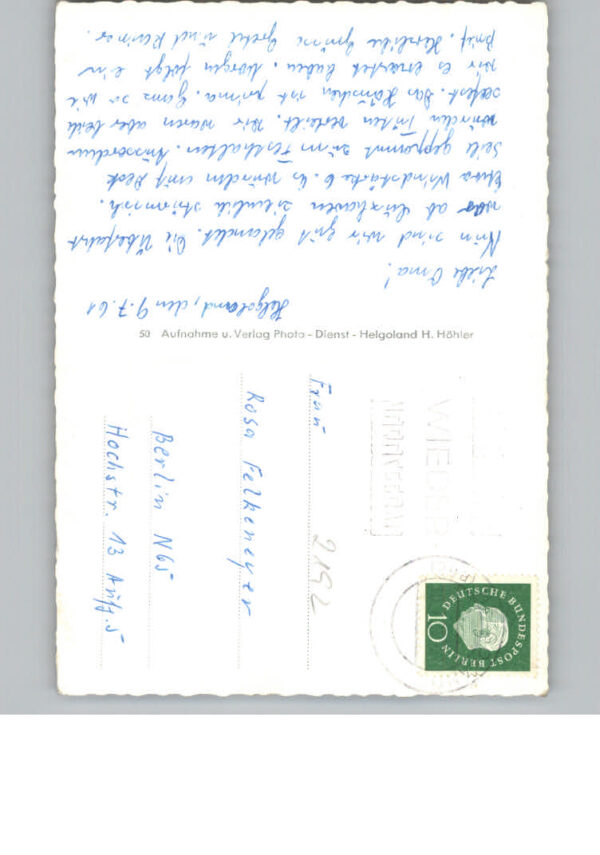 Helgoland, den 9.7.61
Liebe Oma!
Nun sind wir gut gelandet. Die Überfahrt
war ab Cuxhaven ziemlich stürmisch.
Etwa Windstärke 6. Es wurden auf Deck
Seile gespannt zum Festhalten. Ausserdem
wurden Tüten verteilt. Wir waren aber beide
seefest. Das Häuschen ist prima. Ganz so wie
wir es erwartet haben. Morgen folgt ein
Brief. Herzliche Grüsse Gretel und Reiner.
50 Aufnahme u. Verlag Photo - Dienst - Helgoland H. Höhler
Frau
Rosa Felkeneyer
Berlin N65
Hochstr. 13 Aufg. 5
2192
WIEDER
DEUTSCHE BUNDESPOST BERLIN
10